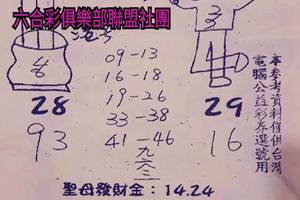 六合彩俱樂部聯盟社團
参考
09-13
16-18
19-26
33-38
41-46
九六三
28
93
29
16
本参考資料僅供台灣
電腦公益彩券選號用
聖母發財金：14.24